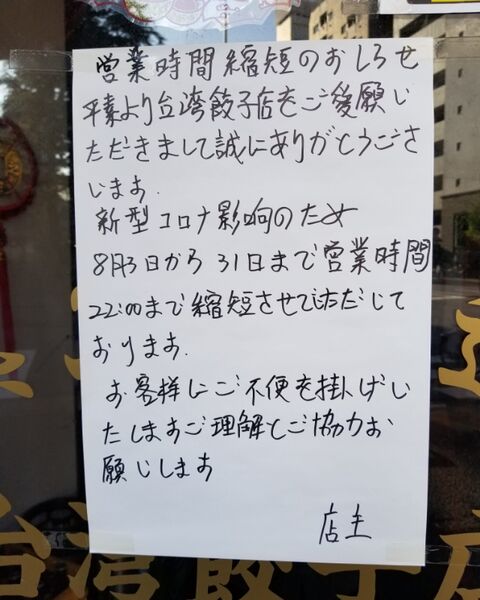 営業時間縮短のおしろせ
平素より台湾餃子店をご愛願い
ただきまして誠にありがとうごさ
います.
新型コロナ影响のため
8月3日から31日まで営業時間
22:00まで縮短させでいただして
おります.
お客様にご不便を掛けい
たしますご理解とご協力お
願いします
店主
台湾餃子店